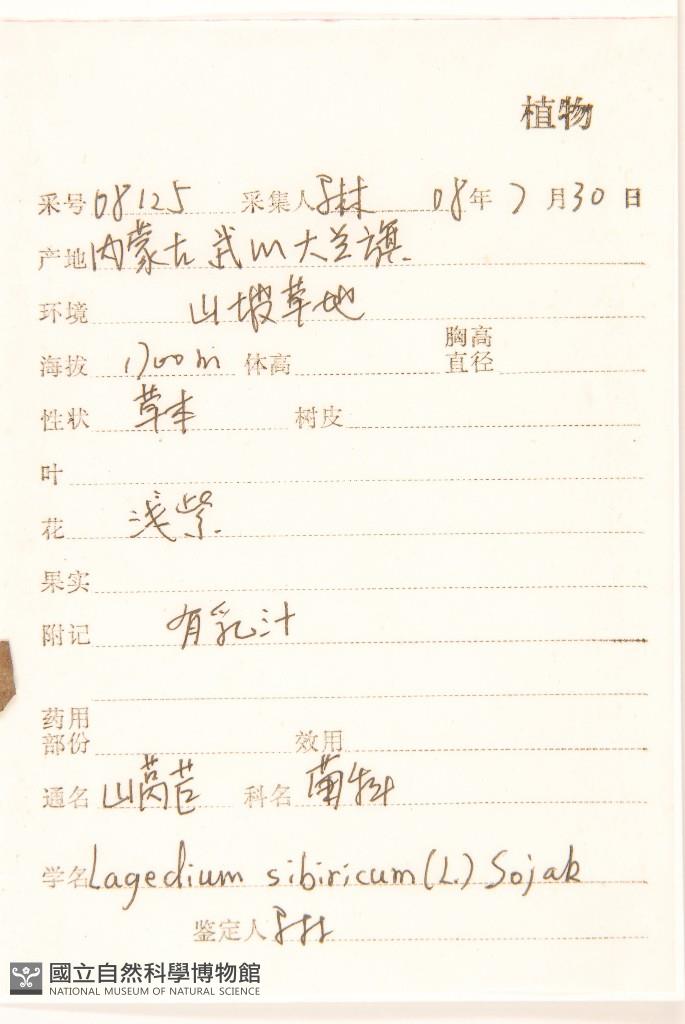 植物
采号 08125 采集人 08年7月30日
产地 内蒙古 武川大兰旗
环境 山坡草地
海拔 1700m 体高 胸高直径
性状 草本 树皮
叶
花 浅紫
果实
附记 有乳汁
药用部份 效用
通名 山莴苣 科名 菊科
学名 Lagedium sibiricum (L.) Sojak
鉴定人
國立自然科學博物館
NATIONAL MUSEUM OF NATURAL SCIENCE